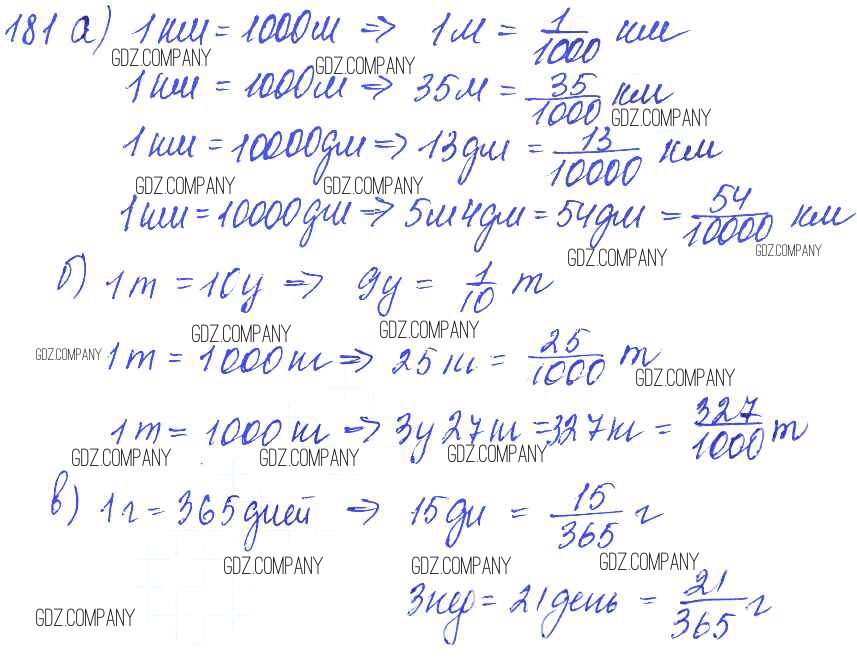 181 а) 1 км = 1000 м => 1 м = 1/1000 км
GDZ.COMPANY GDZ.COMPANY
1 км = 1000 м => 35 м = 35/1000 км
GDZ.COMPANY
1 км = 10000 дм => 13 дм = 13/10000 км
GDZ.COMPANY GDZ.COMPANY
1 км = 10000 дм => 5 м 4 дм = 54 дм = 54/10000 км
GDZ.COMPANY GDZ.COMPANY
б) 1 т = 10 ц => 9 ц = 1/10 т
GDZ.COMPANY GDZ.COMPANY
GDZ.COMPANY 1 т = 1000 кг => 25 кг = 25/1000 т
GDZ.COMPANY
1 т = 1000 кг => 3 ц 27 кг = 327 кг = 327/1000 т
GDZ.COMPANY GDZ.COMPANY GDZ.COMPANY
в) 1 г = 365 дней => 15 дн = 15/365 г
GDZ.COMPANY GDZ.COMPANY GDZ.COMPANY
3 нед = 21 день = 21/365 г
GDZ.COMPANY